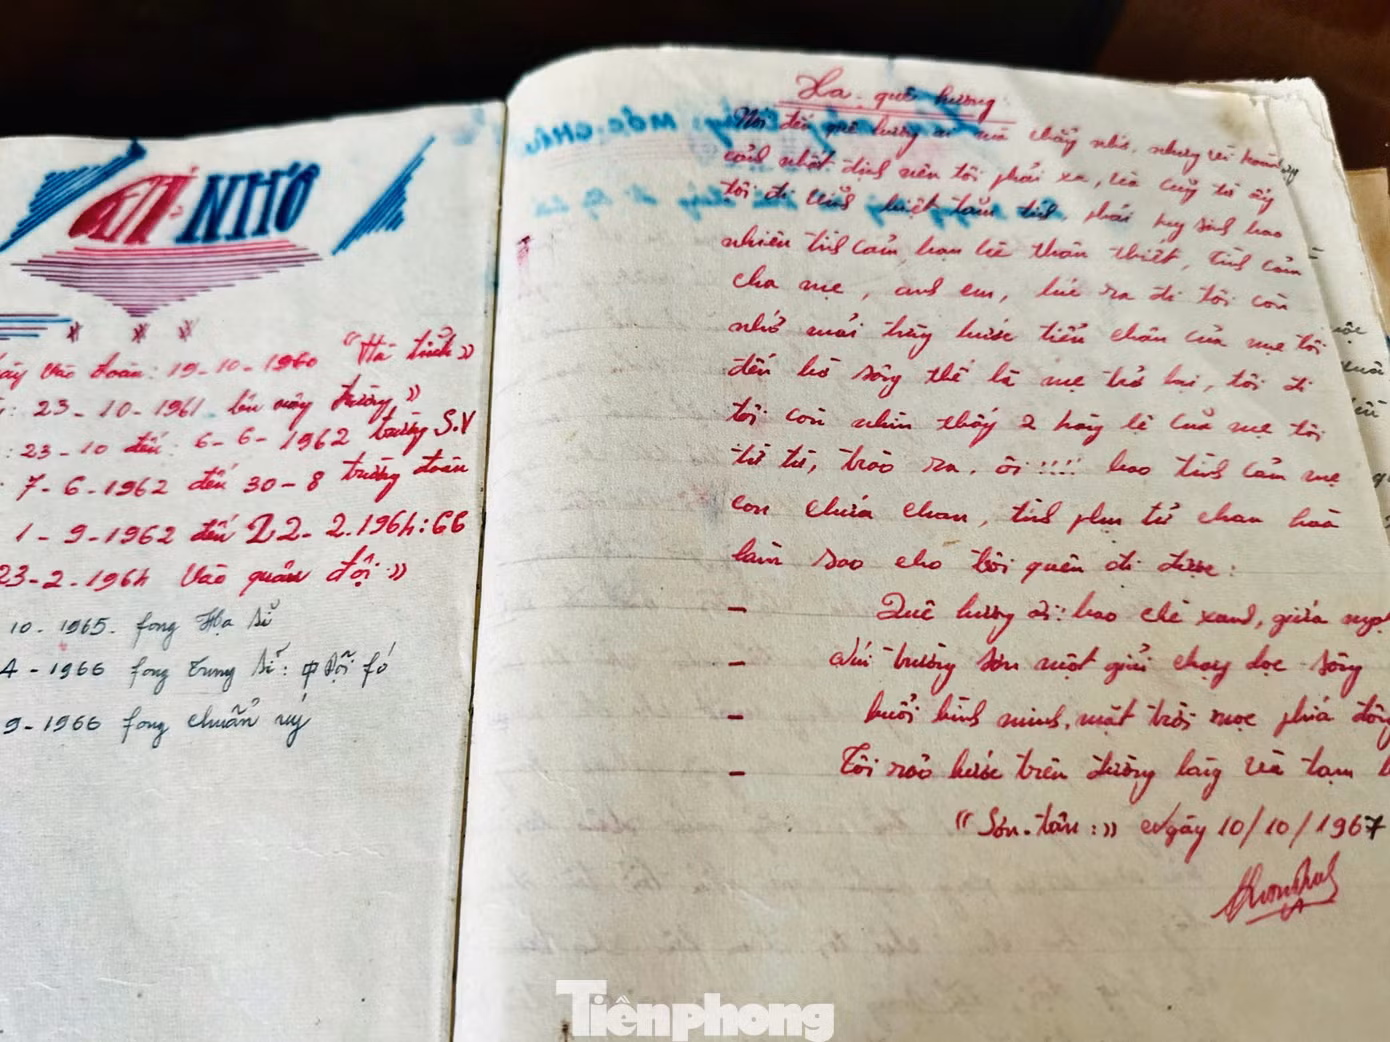 GHI NHỚ
Vào đoàn: 19-10-1960 "Hà tĩnh"
: 23-10-1961 lên máy trường"
: 23-10 đến 6-6-1962 trường S.V
7-6-1962 đến 30-8 trường đoàn
1-9-1962 đến 22-2.1964: GG
23-2.1964 Vào quân đội"
10-1965. fong Hạ sĩ
4-1966 fong Trung sĩ: Đội fó
9-1966 fong chuẩn úy
Xa quê hương
Nói đến quê hương ai mà chẳng nhớ, nhưng vì hoàn
cảnh nhất định nên tôi phải xa, và cũng từ ấy
tôi đi tình, phải hy sinh bao
nhiêu tình cảm bạn bè thân thiết, tình cảm
cha mẹ, anh em, lúc ra đi tôi còn
nhớ mãi từng bước tiễn chân của mẹ tôi
đến bờ sông thế là mẹ trở lại, tôi đi
tôi còn nhìn thấy 2 hàng lệ của mẹ tôi
từ từ, trào ra. ôi!!!! bao tình cảm mẹ
con chứa chan, tình phụ tử chan hoà
làm sao cho tôi quên đi được:
- Quê hương ơi: bao chè xanh, giữa
- Núi trường sơn một giải chạy dọc sông
- buổi bình minh, mặt trời mọc phía đông
- Tôi rảo bước trên đường làng và tạm
"Sơn-tân:" Ngày 10/10/1967
Tiênphong